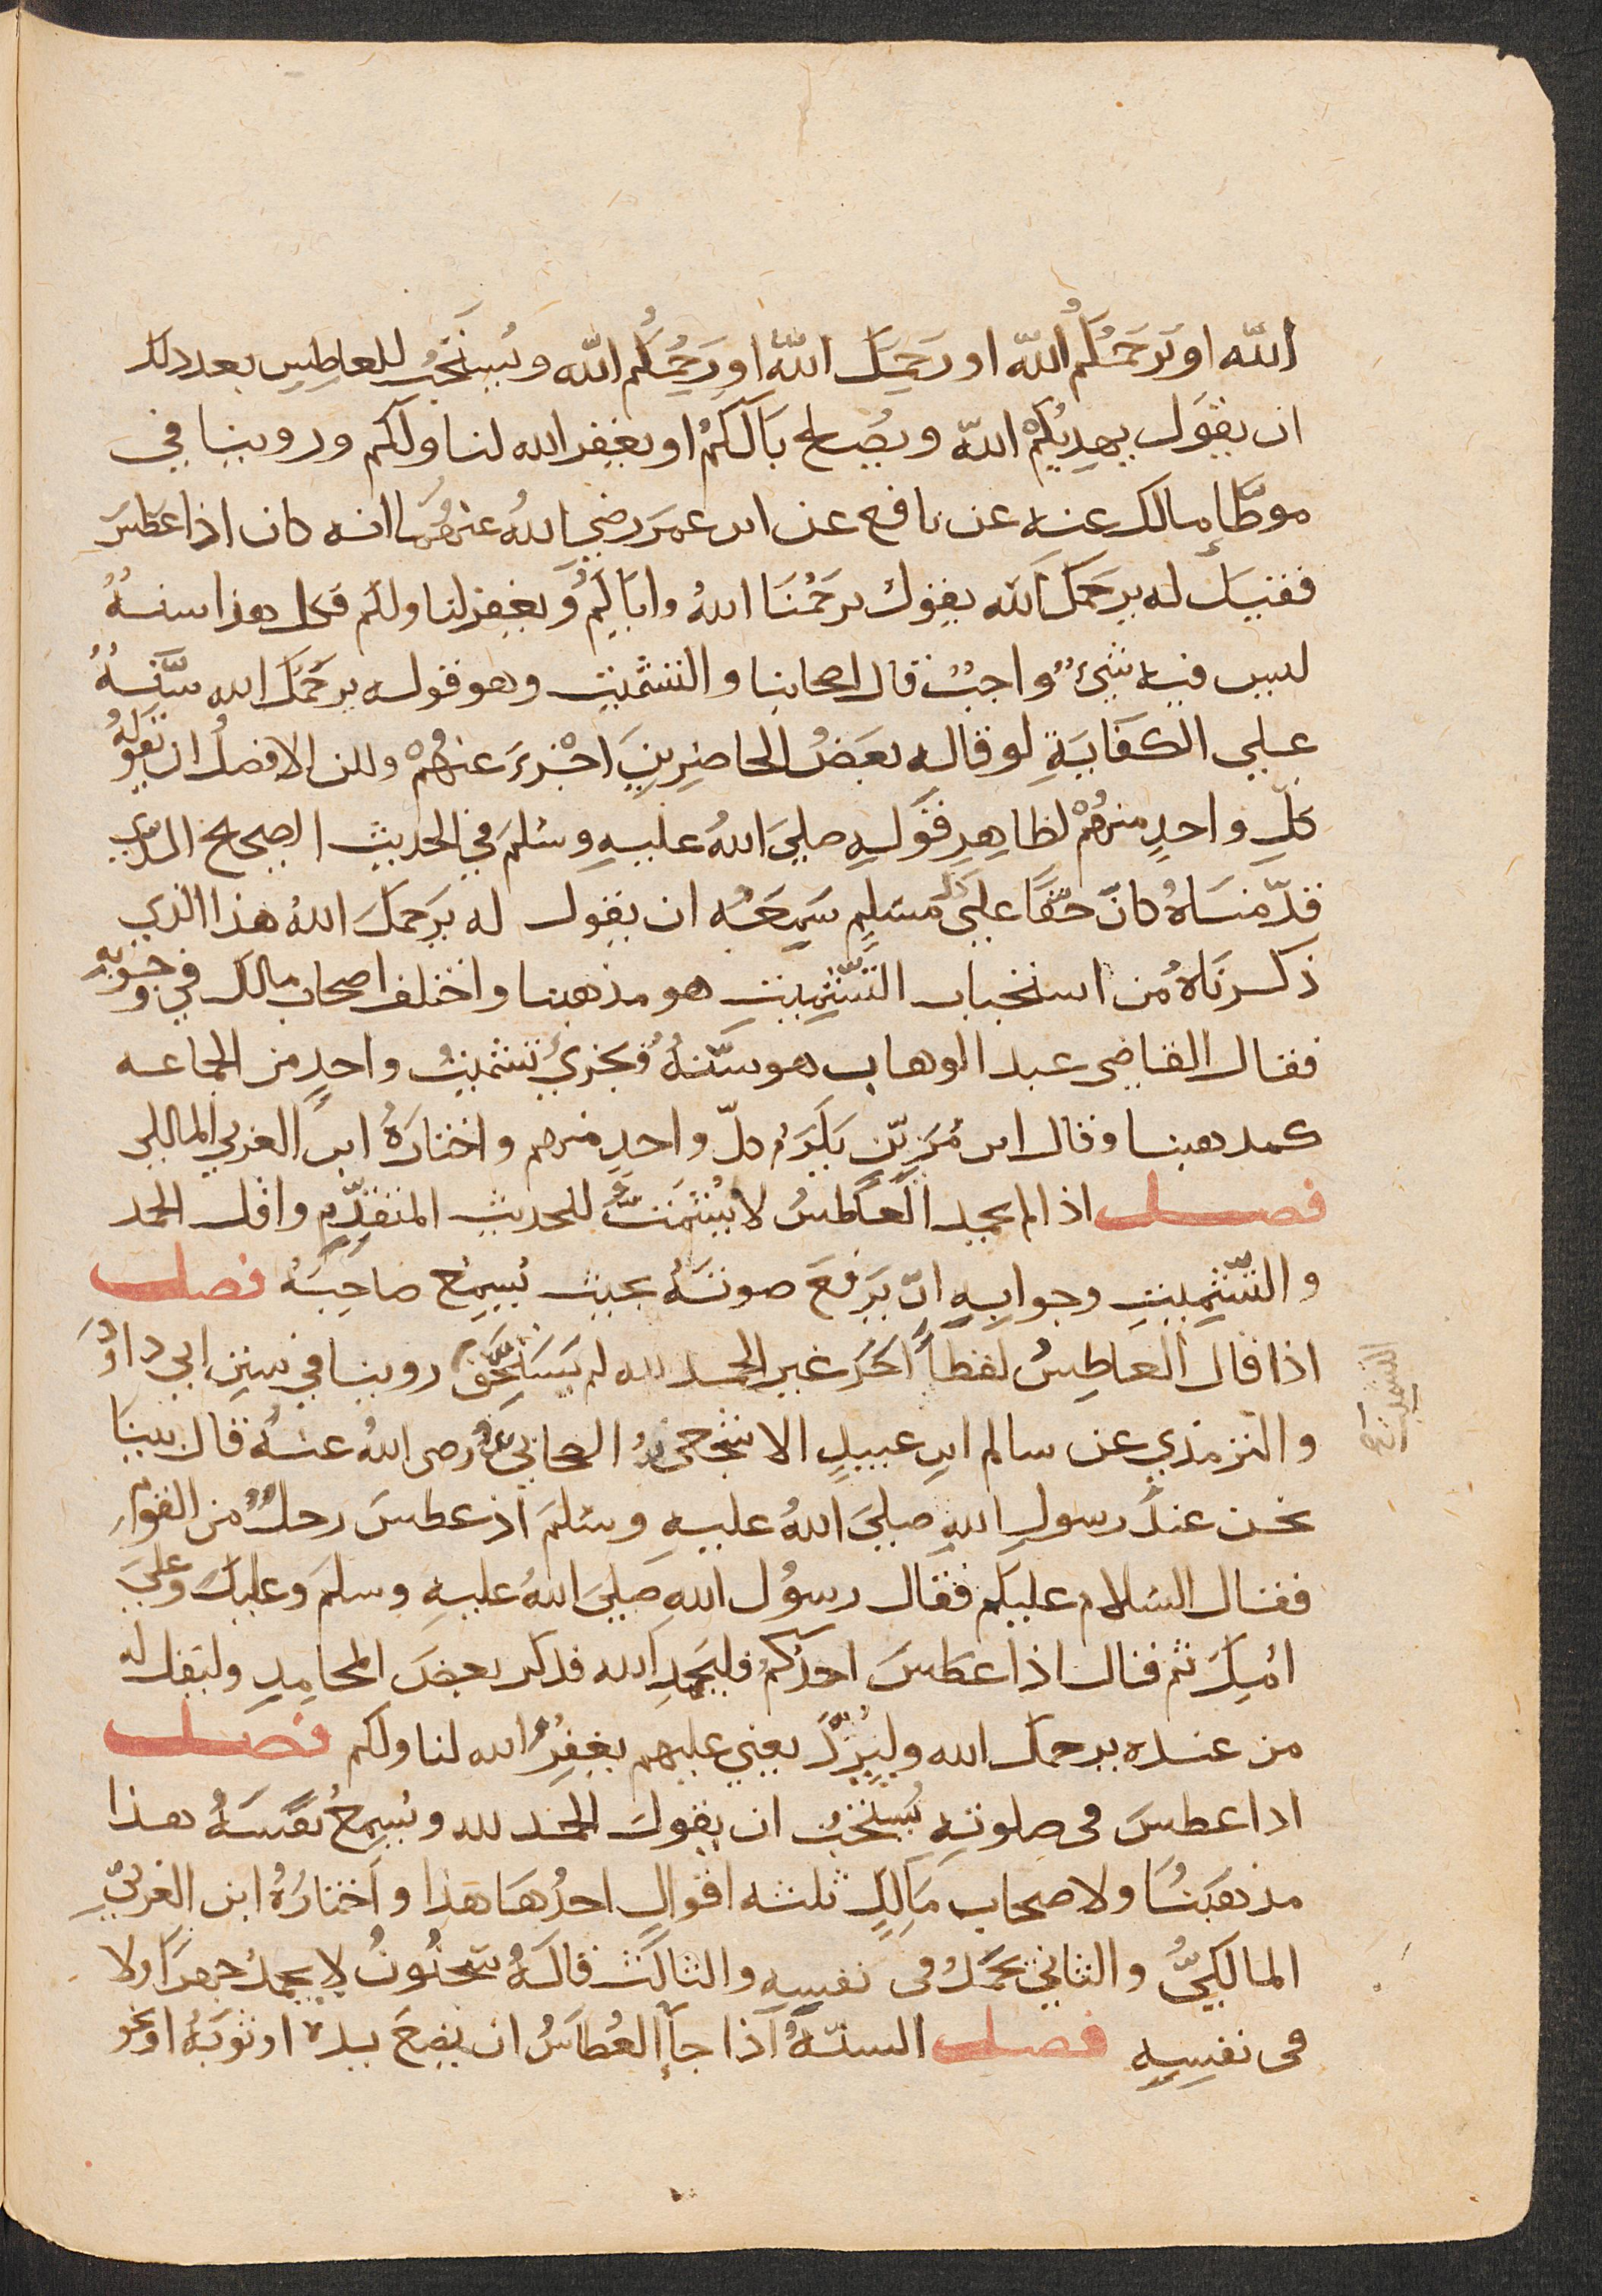 الله او يَرحَمُكُم الله او رَحِمَكَ اللهُ او رَحِمَكُم الله ويُستَحَبُّ للعاطِسِ بعد ذلك
ان يقول يهدِيكُمْ الله ويُصلح بَالَكُمْ او يغفر الله لنا ولكم وروينا في
موطَّأ مالك عنه عن نافع عن ابن عمرَ رضي اللهُ عنهُما انه كان اذا عَطَسَ
فقيل له يرحمك الله يقول يرحَمُنَا اللهُ واياكُم ويغفر لنا ولكم وكل هذا سنةٌ
ليس فيه شيءٌ واجبٌ قال اصحابنا والتشميت وهو قوله يرحمكَ الله سُنَّةٌ
علي الكفَايَةِ لو قاله بعضُ الحاضِرِينَ اجْزءَ عنهُمْ ولكن الافضلُ ان يقولَهُ
كلّ واحدٍ منهُمْ لظاهِرِ قَولِهِ صلي اللهُ عليهِ وسلمَ في الحديثِ الصحيح الذي
قدّمنَاهُ كانَ حقًّا علي كل مسلِمٍ سَمِعَهُ ان يقول له يَرحمكَ اللهُ هذا الذي
ذكرنَاهُ من استحباب التَّشميتِ هو مذهبنا واختلف اصحاب مالك في وجوبِهِ
فقال القاضي عبد الوهاب هو سُنّةٌ ويجزيُ تشميتُ واحدٍ من الجماعه
كمذهبنا وقال ابن مُزَيّنٍ يلزَمُ كلّ واحدٍ منهم واختارَهُ ابن العربي المالكي
فصل اذا لم يحمد العَاطسُ لا يُشَمَّتُ للحديث المتقدِّمِ واقل الحمد
والتّشميتِ وجوابِهِ انْ يَرفعَ صوتَهُ بحيث يُسمِعُ صاحِبَهُ فصل
اذا قال العاطِسُ لفظًا اخَرَ غير الحمد لله لم يَستَحِقَّ روينا في سننِ ابي داوُدَ
التشميت صح
والترمذي عن سالم ابنِ عبيدٍ الاشجعي الصحابيّ رضى اللهُ عنهُ قال بينَا
نحن عندَ رسولِ اللهِ صلي اللهُ عليهِ وسلمَ اذ عطسَ رجلٌ من القومِ
فقال السلام عليكم فقال رسُول اللهِ صَلي اللهُ عليهِ وسلمَ وعليكَ وعليَ
امّكَ ثم قال اذا عطسَ احدُكُم فليحمدِ الله فذكر بعضَ المحامدِ وليقل له
من عنده يرحمك الله وليرُدَّ يعني عليهم يغفِرُ الله لنا ولكم فصل
اذا عطسَ فى صلوتِهِ يُستحَبُّ ان يقولَ الحمد لله ويُسمِعُ نفسَهُ هذا
مذهبُنَا ولاصحاب مَالِكٍ ثلثه اقوالٍ احدُهَا هذا واختارَهُ ابن العربيّ
المالكيُّ والثاني يحمَدُ فى نفسِهِ والثالثُ قالَهُ سَحنُونُ لا يحمدُ جهرًا ولا
فى نفسِهِ فصل السنّةُ اذا جاَء العُطاسُ ان يضعَ يده او ثوبَهُ او نحو